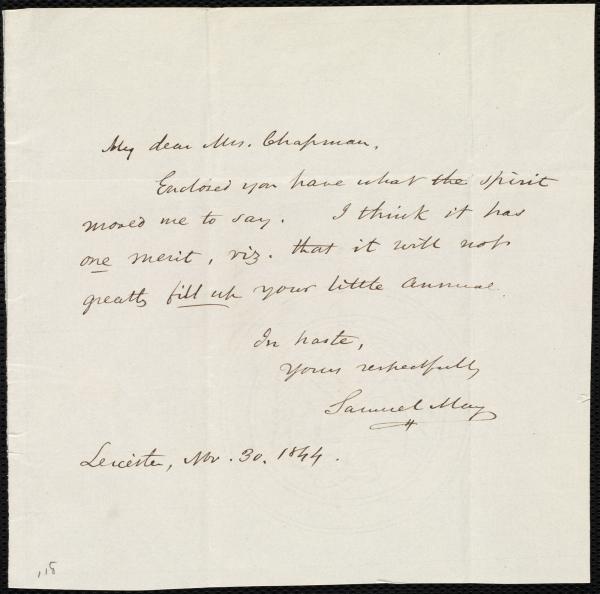 My dear Mrs. Chapman,
Enclosed you have what the spirit
moved me to say. I think it has
one merit, viz. that it will not
greatly fill up your little annual.
In haste,
Yours respectfully
Samuel May
Leicester, Nov. 30. 1844.